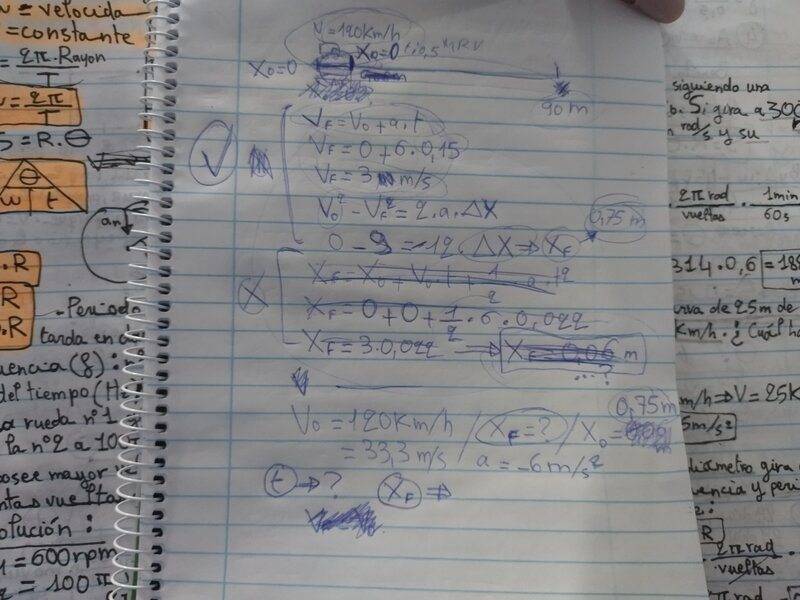 V = velocida
= constante
= 2π.Rayon
T
= 2π
T
S = R.θ
θ
w t
.R
R
.R
-Periodo
tarda en
uencia (f):
del tiempo (H
a rueda nº1
la nº2 a 10
poseer mayor
ntas vuelta
olución:
= 600rpm
= 100π
V=120Km/h
X₀=0 X₀=0
90m
V_F=V₀+a.t
V_F=0+6.0,15
V_F=3 m/s
V₀²-V_F²=2.a.ΔX
0,75m
0-9=-12 ΔX⇒X_F
X_F=X₀+V₀.t+1/2.a.t²
X_F=0+0+1/2.6.0,022
X_F=3.0,022 → X_F=0,06 m
...?
V₀=120Km/h / X_F=? / X₀= 0,75m
=33,3m/s a=-6m/s²
t→? X_F⇒
siguiendo una
Si gira a 300
rad/s y su
. 2πrad/vueltas . 1min/60s
314.0,6=188
rva de 25m de
Km/h.¿Cuál ha
m/h⇒V=25K
5m/s²
diámetro gira
uencia y peri
R
2πrad
vueltas
πrad